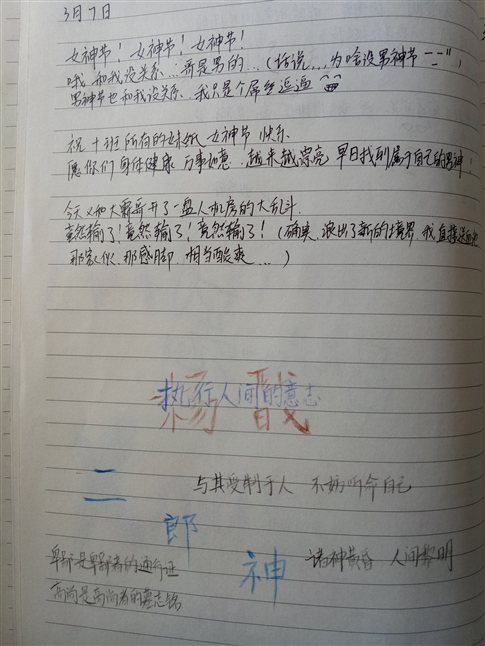 3月7日
女神节！女神节！女神节！
哦 和我没关系...哥是男的...（话说...为啥没男神节
男神节也和我没关系 我只是个屌丝逗逼
祝十班所有的妹纸 女神节快乐
愿你们身体健康 万事如意 越来越漂亮 早日找到属于自己的男神！
今天又和大霸哥开了一盘人机房的大乱斗
竟然输了！竟然输了！竟然输了！（确实 浪出了新的境界 我直接送血池
那家伙 那感脚 相当酸爽...）
杨戬
执行人间的意志
与其受制于人 不妨听命自己
二郎神
诸神黄昏 人间黎明
卑鄙是卑鄙者的通行证
高尚是高尚者的墓志铭